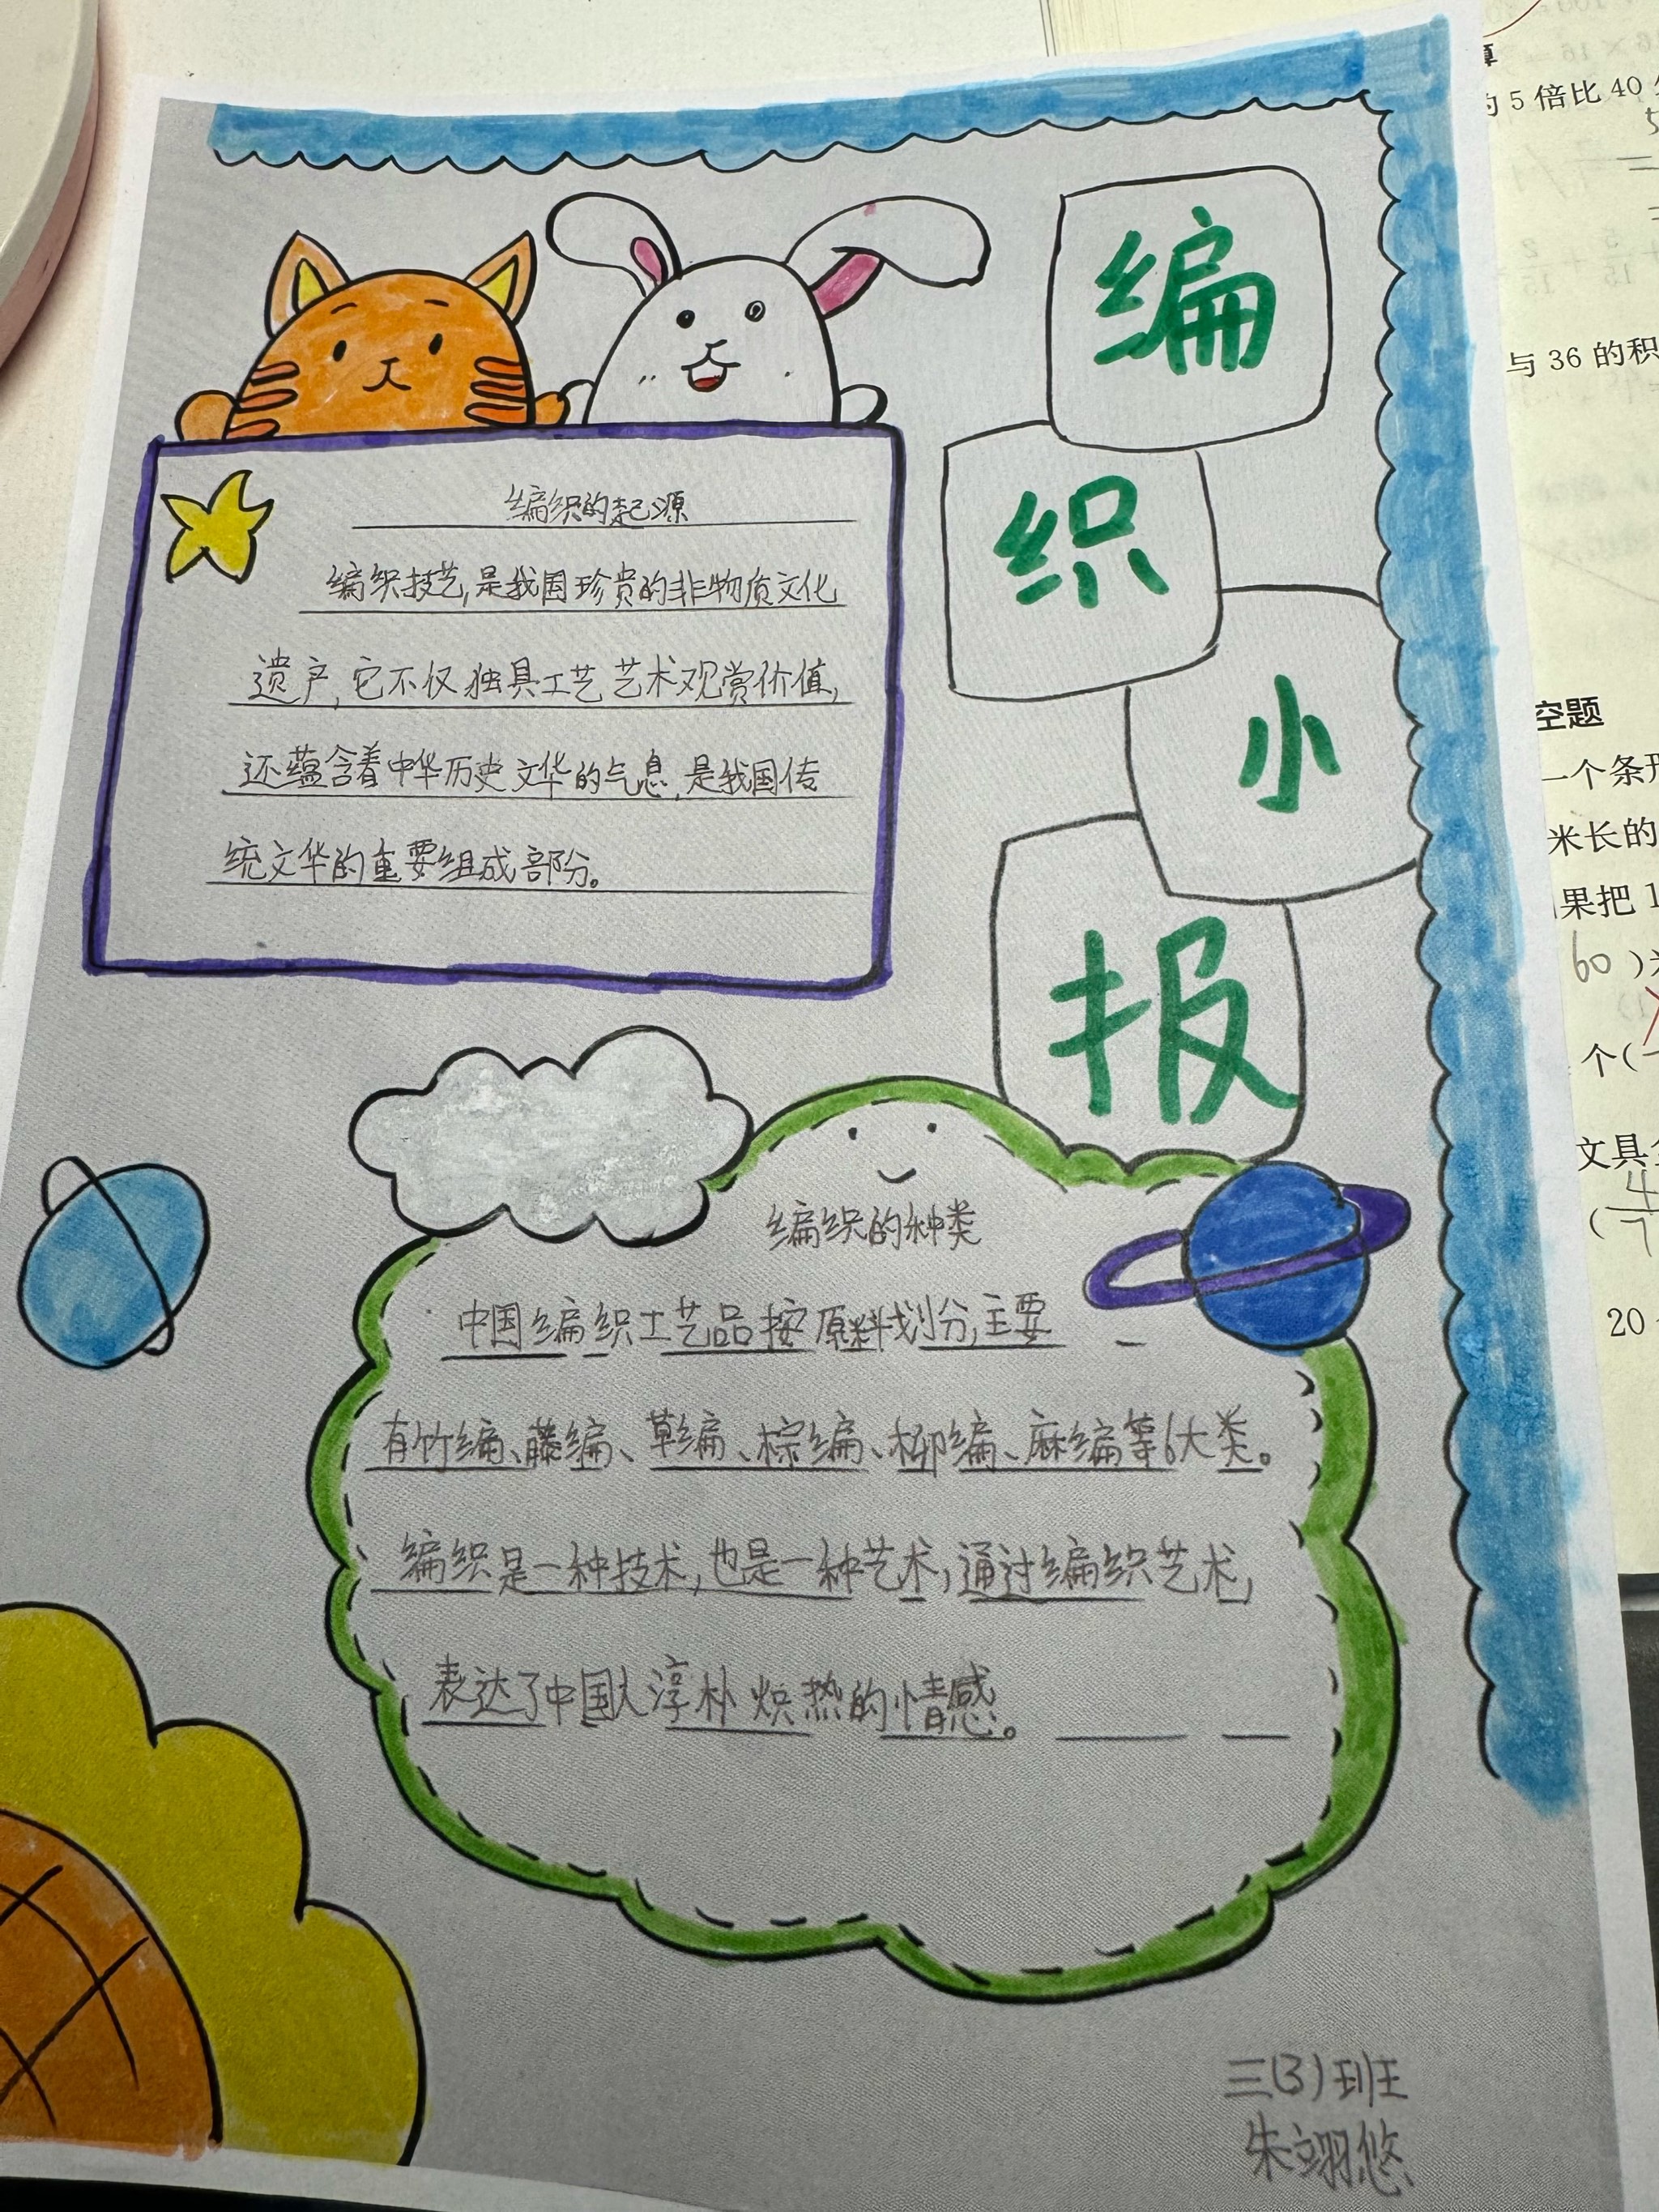 编
织
小
报
编织的起源
编织技艺,是我国珍贵的非物质文化
遗产,它不仅独具工艺艺术观赏价值,
还蕴含着中华历史文华的气息,是我国传
统文华的重要组成部分。
编织的种类
中国编织工艺品按原料划分,主要
有竹编、藤编、草编、棕编、柳编、麻编等6大类。
编织是一种技术,也是一种艺术,通过编织艺术,
表达了中国人淳朴炽热的情感。
三(3)班
朱翊悠
算
的5倍比40
与36的积
空题
一个条形
米长的
果把1
60)米
个(一
文具盒
(4/7
20